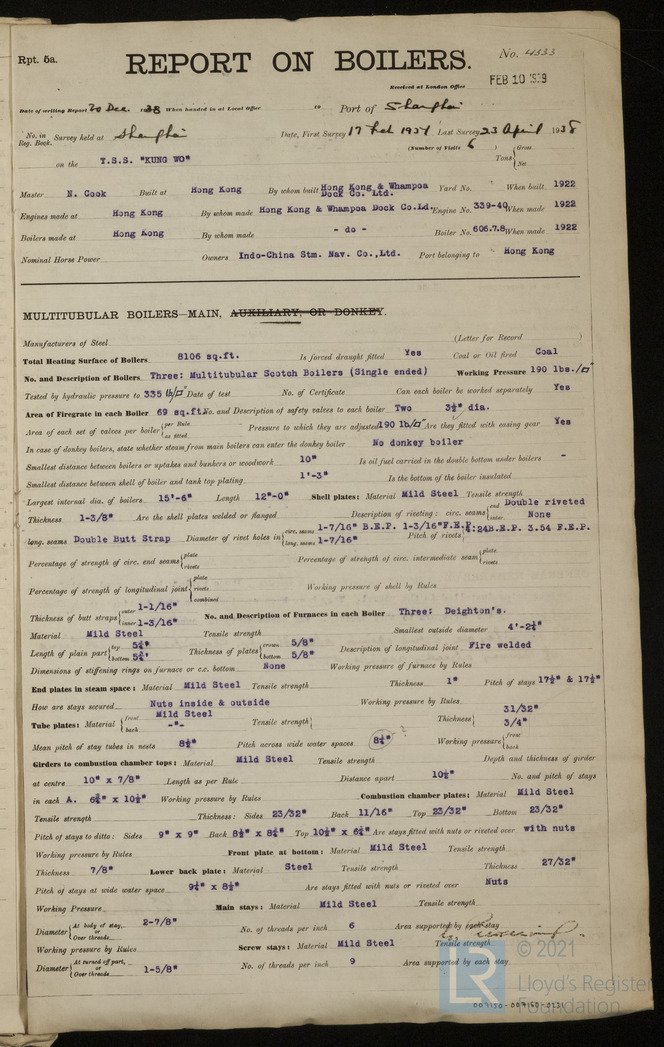 Rpt. 5a.
No. 4333
REPORT ON BOILERS.
Received at London Office FEB 10 1939
Date of writing Report 20 Dec. 1938 When handed in at Local Office 19 Port of Shanghai
No. in Reg. Book. Survey held at Shanghai Date, First Survey 17 Feb 1937 Last Survey 23 April 1938
(Number of Visits 6 )
on the T.S.S. "KUNG WO" Tons { Gross Net
Master N. Cook Built at Hong Kong By whom built Hong Kong & Whampoa Dock Co. Ltd. Yard No. When built 1922
Engines made at Hong Kong By whom made Hong Kong & Whampoa Dock Co.Ld. Engine No. 339-40 When made 1922
Boilers made at Hong Kong By whom made - do - Boiler No. 606.7.8 When made 1922
Nominal Horse Power Owners Indo-China Stm. Nav. Co.,Ltd. Port belonging to Hong Kong
MULTITUBULAR BOILERS—MAIN, AUXILIARY, OR DONKEY.
Manufacturers of Steel (Letter for Record )
Total Heating Surface of Boilers 8106 sq.ft. Is forced draught fitted Yes Coal or Oil fired Coal
No. and Description of Boilers Three: Multitubular Scotch Boilers (Single ended) Working Pressure 190 lbs./□"
Tested by hydraulic pressure to 335 lb/□" Date of test No. of Certificate Can each boiler be worked separately Yes
Area of Firegrate in each Boiler 69 sq.ft. No. and Description of safety valves to each boiler Two 3½" dia.
Area of each set of valves per boiler { per Rule as fitted Pressure to which they are adjusted 190 lb/□" Are they fitted with easing gear Yes
In case of donkey boilers, state whether steam from main boilers can enter the donkey boiler No donkey boiler
Smallest distance between boilers or uptakes and bunkers or woodwork 10" Is oil fuel carried in the double bottom under boilers -
Smallest distance between shell of boiler and tank top plating 1'-3" Is the bottom of the boiler insulated
Largest internal dia. of boilers 15'-6" Length 12"-0" Shell plates: Material Mild Steel Tensile strength
Thickness 1-3/8" Are the shell plates welded or flanged Description of riveting: circ. seams { end Double riveted inter. None
long. seams Double Butt Strap Diameter of rivet holes in { circ. seams 1-7/16" B.E.P. 1-3/16"F.E.P. long. seams 1-7/16" Pitch of rivets { 4.24B.E.P. 3.54 F.E.P.
Percentage of strength of circ. end seams { plate rivets Percentage of strength of circ. intermediate seam { plate rivets
Percentage of strength of longitudinal joint { plate rivets combined Working pressure of shell by Rules
Thickness of butt straps { outer 1-1/16" inner 1-3/16" No. and Description of Furnaces in each Boiler Three: Deighton's.
Material Mild Steel Tensile strength Smallest outside diameter 4'-2¼"
Length of plain part { top 5¾" bottom 5¾" Thickness of plates { crown 5/8" bottom 5/8" Description of longitudinal joint Fire welded
Dimensions of stiffening rings on furnace or c.c. bottom None Working pressure of furnace by Rules
End plates in steam space: Material Mild Steel Tensile strength Thickness 1" Pitch of stays 17½" & 17½"
How are stays secured Nuts inside & outside Working pressure by Rules
Tube plates: Material { front Mild Steel back -"- Tensile strength { Thickness { 31/32" 3/4"
Mean pitch of stay tubes in nests 8½" Pitch across wide water spaces 8¼" ? Working pressure { front back
Girders to combustion chamber tops: Material Mild Steel Tensile strength Depth and thickness of girder
at centre 10" x 7/8" Length as per Rule Distance apart 10½" No. and pitch of stays
in each A. 6¾" x 10½" Working pressure by Rules Combustion chamber plates: Material Mild Steel
Tensile strength Thickness: Sides 23/32" Back 11/16" Top 23/32" Bottom 23/32"
Pitch of stays to ditto: Sides 9" x 9" Back 8½" x 8¾" Top 10½" x 6¾" Are stays fitted with nuts or riveted over with nuts
Working pressure by Rules Front plate at bottom: Material Mild Steel Tensile strength
Thickness 7/8" Lower back plate: Material Steel Tensile strength Thickness 27/32"
Pitch of stays at wide water space 9¾" x 8½" Are stays fitted with nuts or riveted over Nuts
Working Pressure Main stays: Material Mild Steel Tensile strength
Diameter { At body of stay, or Over threads 2-7/8" No. of threads per inch 6 Area supported by each stay
Working pressure by Rules Screw stays: Material Mild Steel Tensile strength
Diameter { At turned off part, or Over threads 1-5/8" No. of threads per inch 9 Area supported by each stay
LR © 2021
Lloyd's Register
Foundation